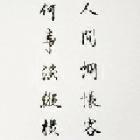 人間惆悵客
何事淚縱橫